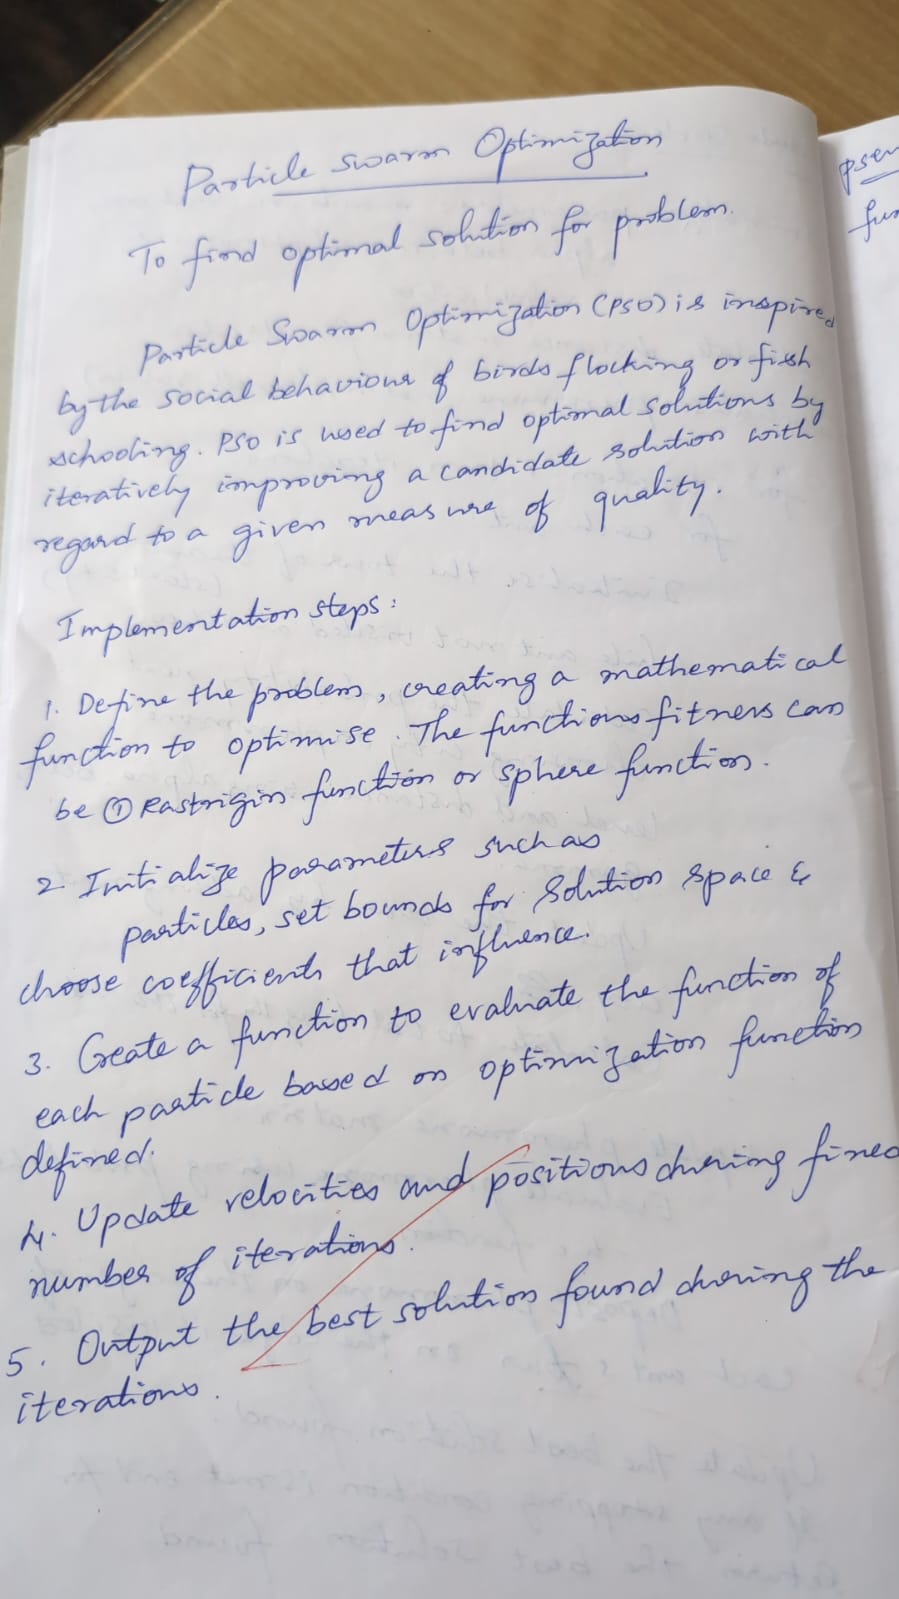 Particle Swarm Optimization
To find optimal solution for problem.
Particle Swarm Optimization (PSO) is inspired
by the social behaviour of birds flocking or fish
schooling. PSO is used to find optimal solutions by
iteratively improving a candidate solution with
regard to a given measure of quality.
Implementation steps:
1. Define the problem, creating a mathematical
function to optimise. The functions fitness can
be ① Rastrigin function or sphere function.
2 Initialize parameters such as
particles, set bounds for solution space &
choose coefficients that influence.
3. Create a function to evaluate the function of
each particle based on optimization function
defined.
4. Update velocities and positions during
number of iterations.
5. Output the best solution found during the
iterations.